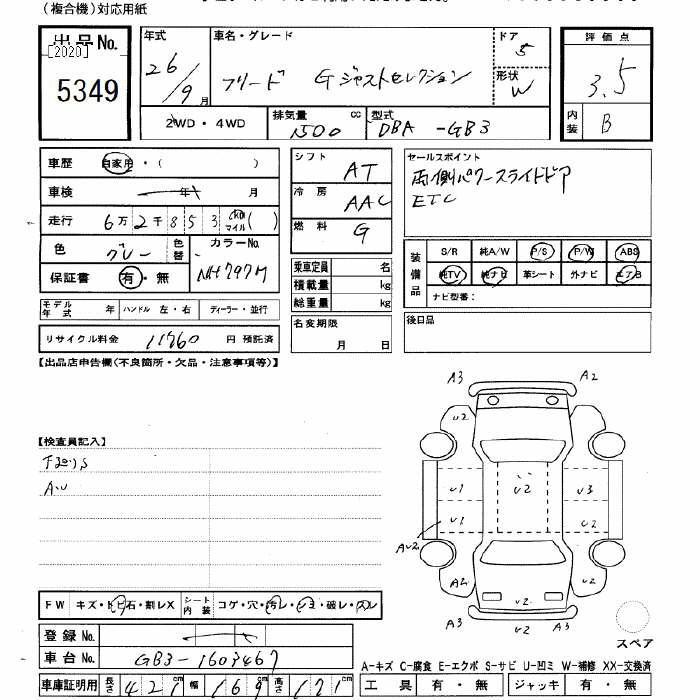 (複合機)対応用紙
出品No.
[2020]
5349
年式 26/9月
車名・グレード フリード Gジャストセレクション
ドア 5
形状 W
評価点 3.5
内装 B
2WD・4WD
排気量 1500 cc
型式 DBA -GB3
車歴 自家用・( )
車検 年 月
走行 6万2千853 km マイル( )
色 グレー 色替
カラーNo. NH797M
保証書 有・無
モデル年式 年 ハンドル 左・右 ディーラー・並行
リサイクル料金 11760 円 預託済
シフト AT
冷房 AAC
燃料 G
乗車定員 名
積載量 kg
総重量 kg
名変期限 月 日
セールスポイント
両側パワースライドドア
ETC
装備品
S/R 純A/W P/S P/W ABS
純TV 純ナビ 革シート 外ナビ エアB
ナビ型番:
後日品
【出品店申告欄(不良箇所・欠品・注意事項等)】
【検査員記入】
下廻りS
A.U
A3 A2
U2
U1 U2 U3
U1 U2
AU2
A2 U2
U2
U2
A3 A3
スペア
FW キズ・トビ石・割レX シート内装 コゲ・穴・汚レ・シミ・破レ・スレ
登録No.
車台No. GB3-1603467
車庫証明用 長さ 421cm 幅 169cm 高さ 171cm
A-キズ C-腐食 E-エクボ S-サビ U-凹ミ W-補修 XX-交換済
工具 有・無 ジャッキ 有・無